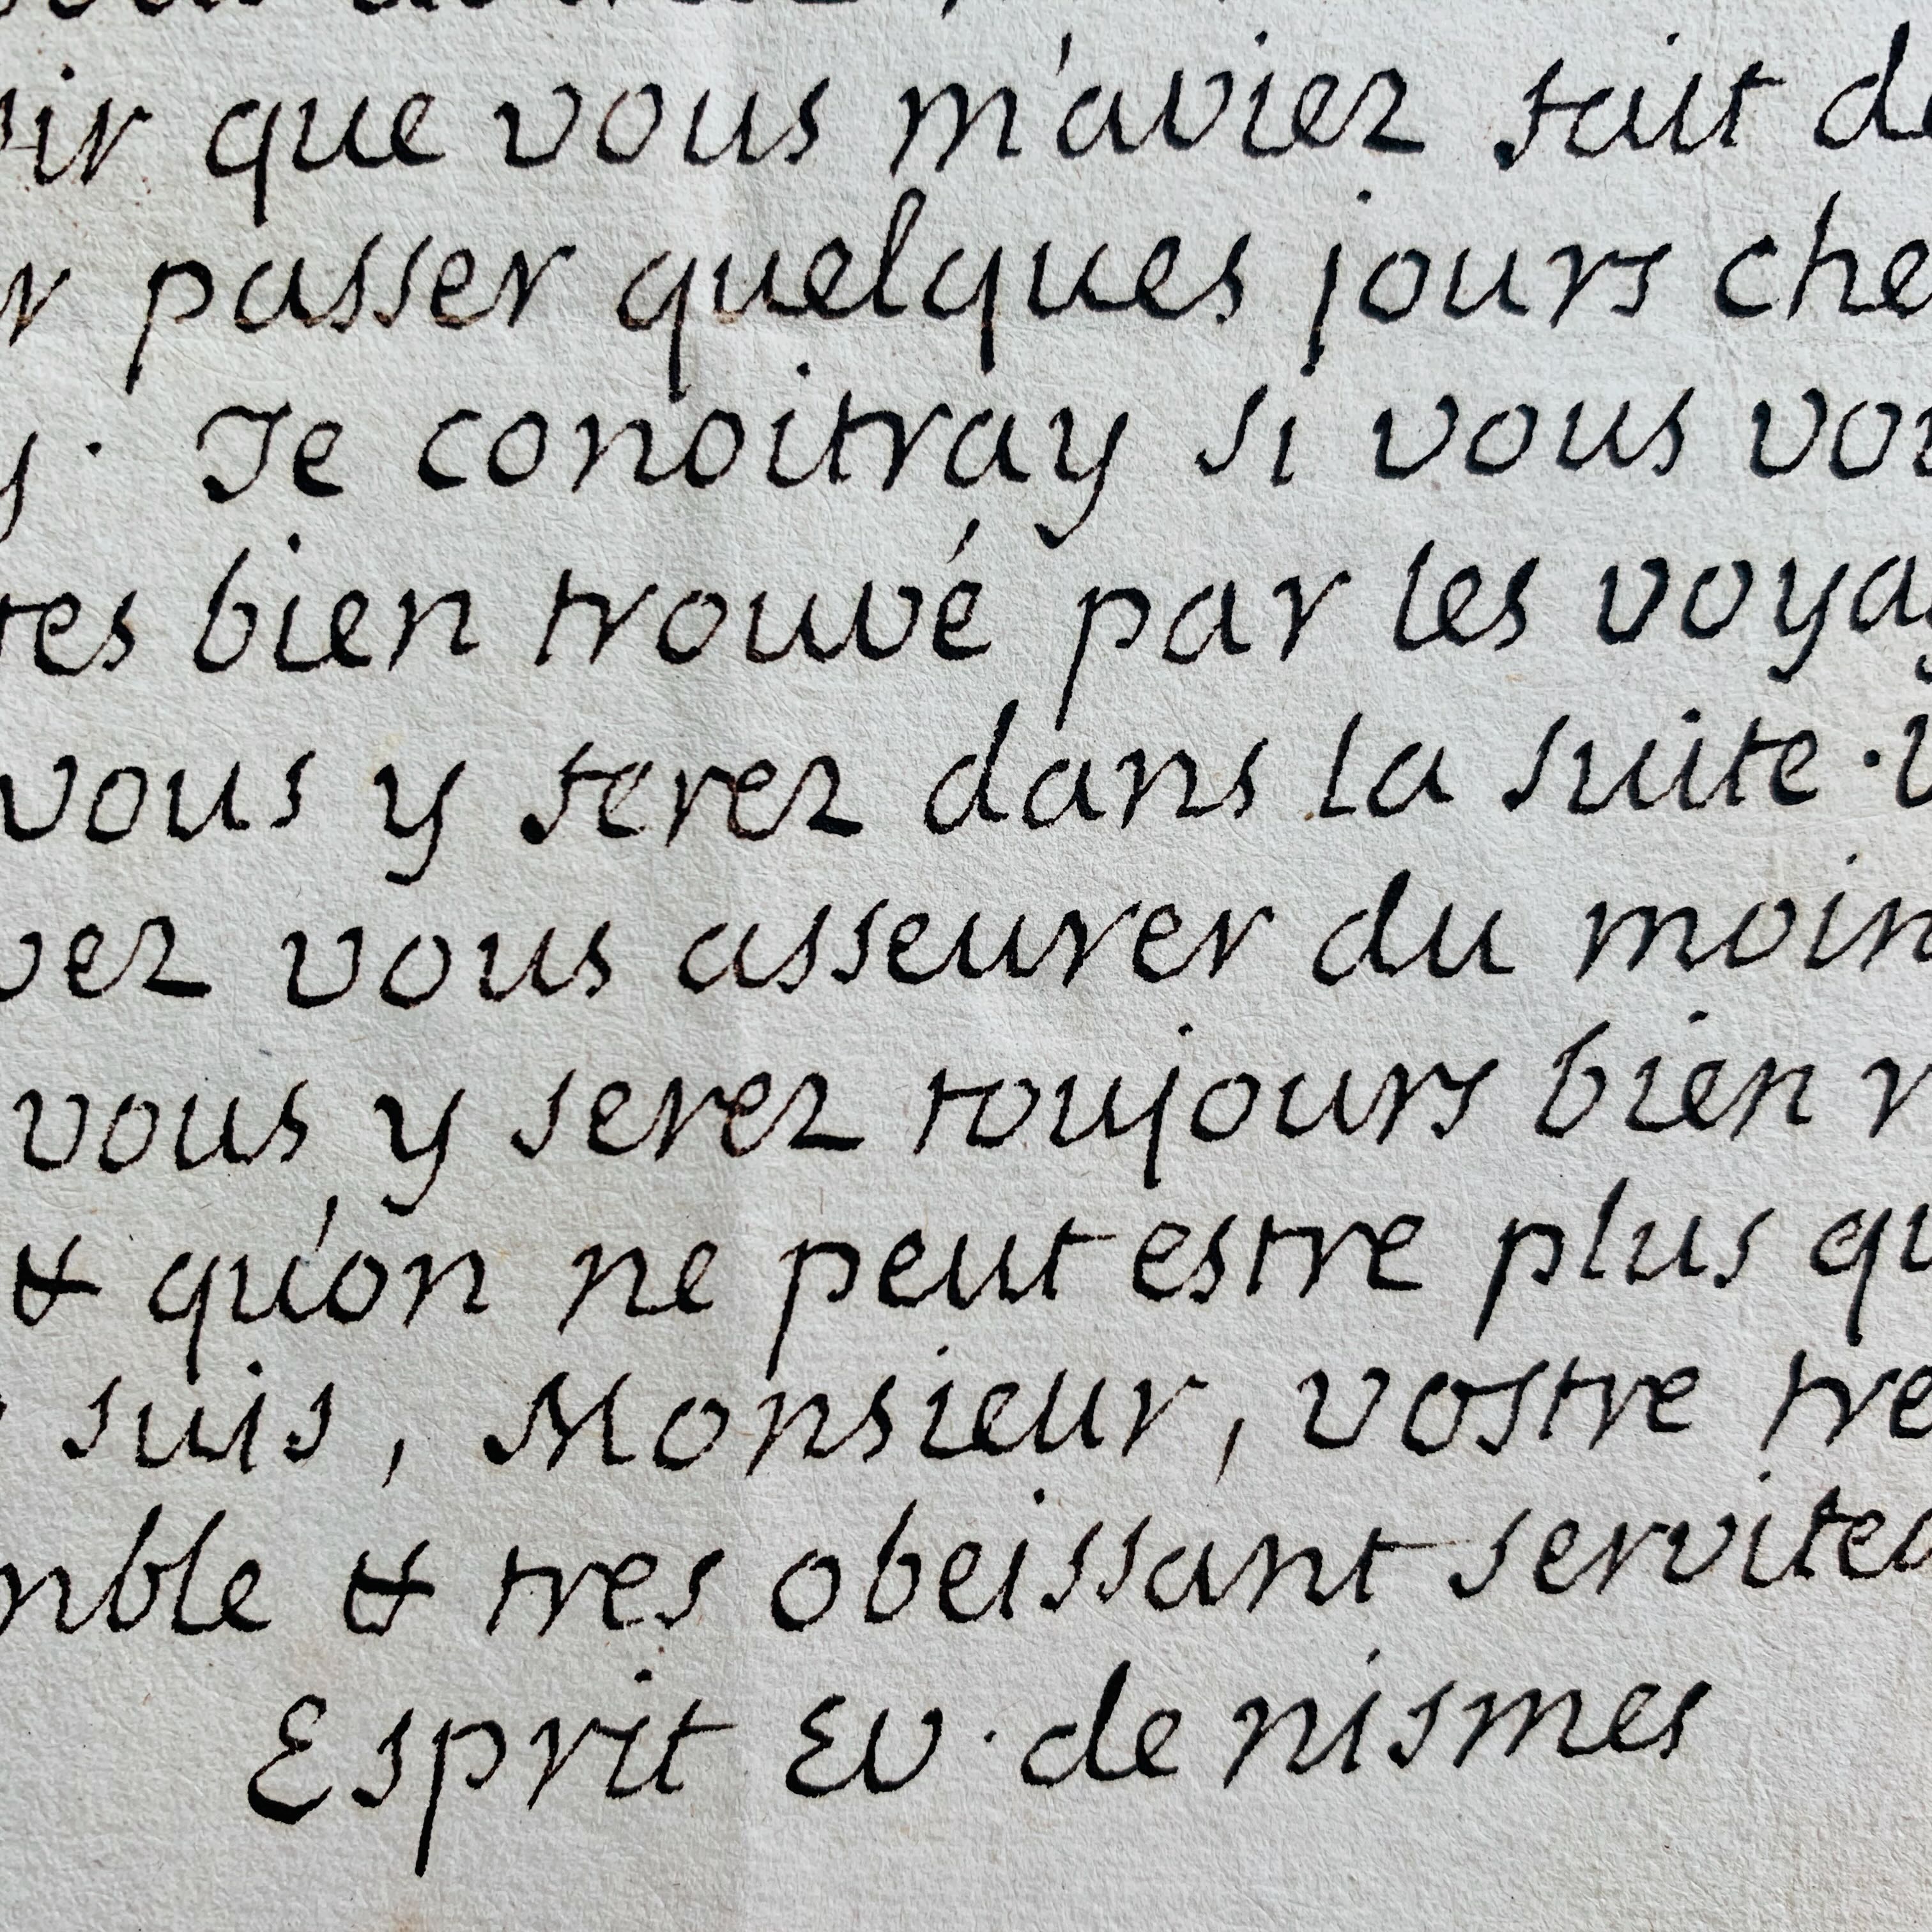 ir que vous m'aviez fait d
r passer quelques jours che
y. Je conoitray si vous vou
tes bien trouvé par les voya
vous y ferez dans la suite. v
vez vous asseurer du moin
vous y serez toujours bien r
& qu'on ne peut estre plus qu
suis, Monsieur, vostre tre
mble & tres obeissant serviteu
Esprit Ev. de nismes